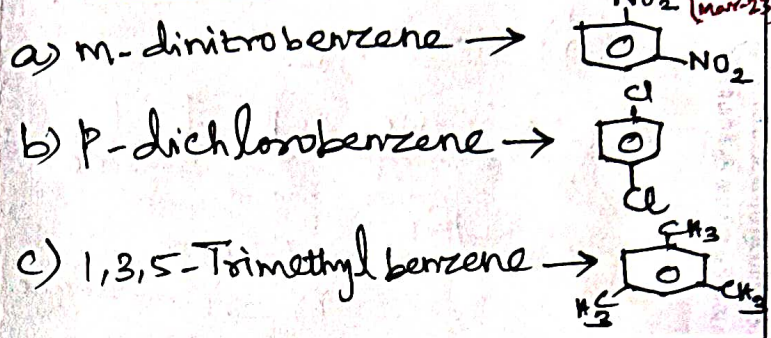 NO2 (Mar-23
a) m-dinitrobenzene → NO2
Cl
b) p-dichlorobenzene →
Cl
CH3
c) 1,3,5-Trimethyl benzene →
H3C CH3